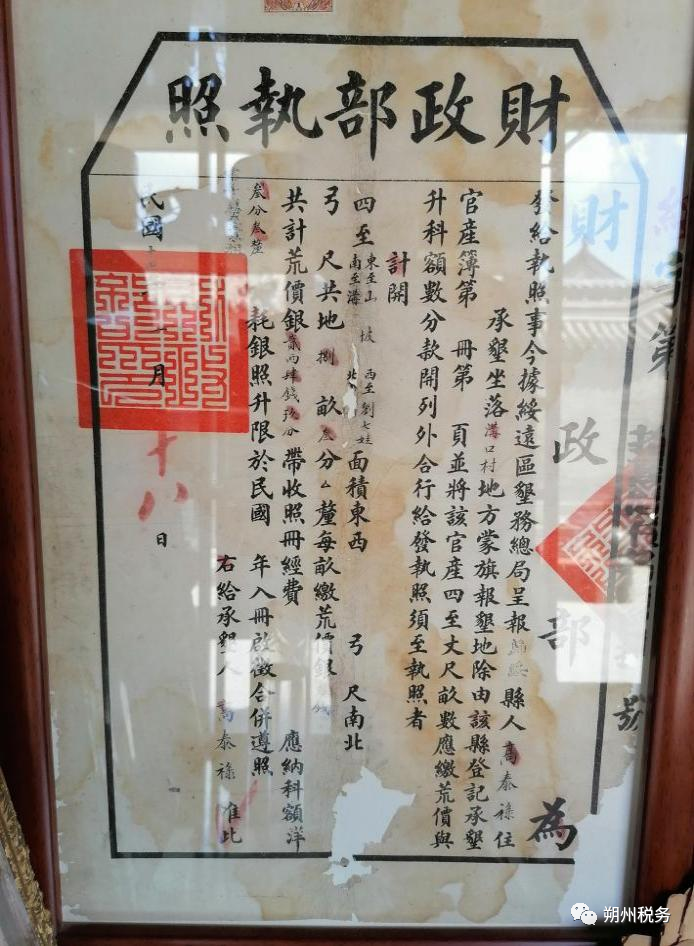 財政部執照
財政部為
發給執照事今據綏遠區墾務總局呈報歸綏縣人高泰祿住
承墾坐落溝口村地方蒙旗報墾地除由該縣登記承墾
官產簿第 冊第 頁並將該官產四至丈尺畝數應繳荒價與
升科額數分款開列外合行給發執照須至執照者
計開
四至東至山坡 西至劉七娃 南至溝 北 面積東西 弓 尺南北
弓 尺共地捌畝叁分厶釐每畝繳荒價銀 錢
共計荒價銀貳兩肆錢玖分帶收照冊經費 應納科額洋
叁分叁釐
耗銀照升限於民國 年入冊啟徵合併遵照
右給承墾人高泰祿 准此
民國 一月十八日
第 號
朔州税务